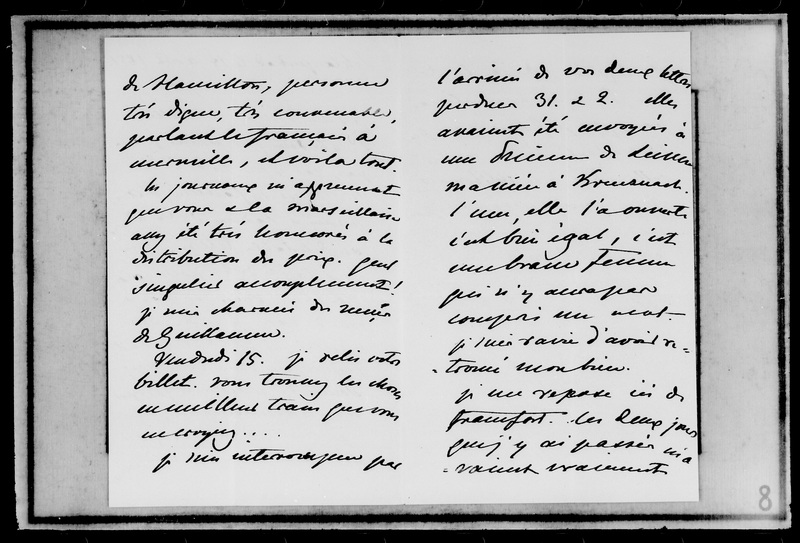 de Hamilton, personne
très digne, très convenable,
parlant le français à
merveille, et voilà tout.
les journaux m'apprennent
que vous & la marseillaise
avez été très honorés à la
distribution des prix. quel
singulier accouplement!
je suis charmée des
de Guillaume.
Vendredi 15. je relis votre
billet. vous trouvez les choses
en meilleur train que vous
ne croyiez....
je suis interrompue par
l'arrivée de vos deux lettres
perdues 31. & 2. elles
avaient été envoyées à
une de
mariée à Kreuznach.
l'une, elle l'a ouverte
c'est bien égal, c'est
une brave femme
qui n'y aura pas
compris un mot.
je suis ravie d'avoir re=
=trouvé mon bien.
je me repose ici de
francfort. les deux jours
que j'y ai passés m'a
=vaient vraiment
8